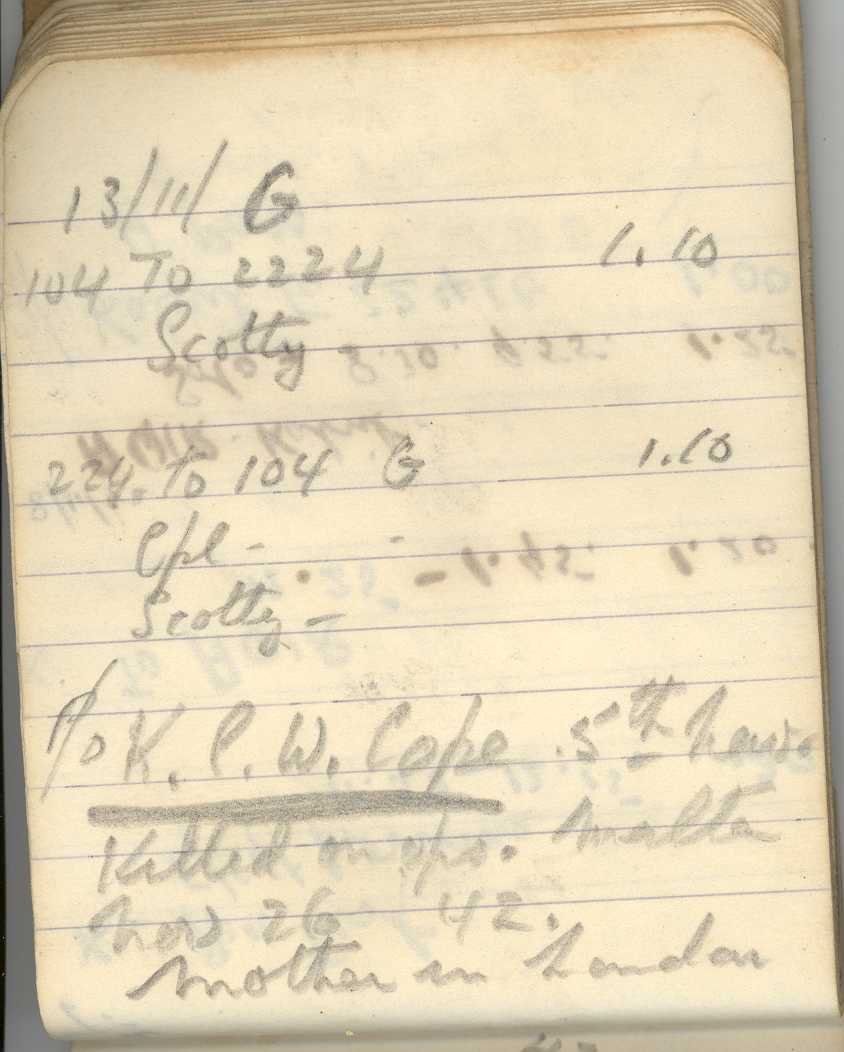 13/11/ G
104 To 2224 1.10
Scotty
224 to 104 G 1.10
Cpl -
Scotty -
P/O K. C. W. Cope 5th
Killed on ops. Malta
Nov 26 42.
Mother in London